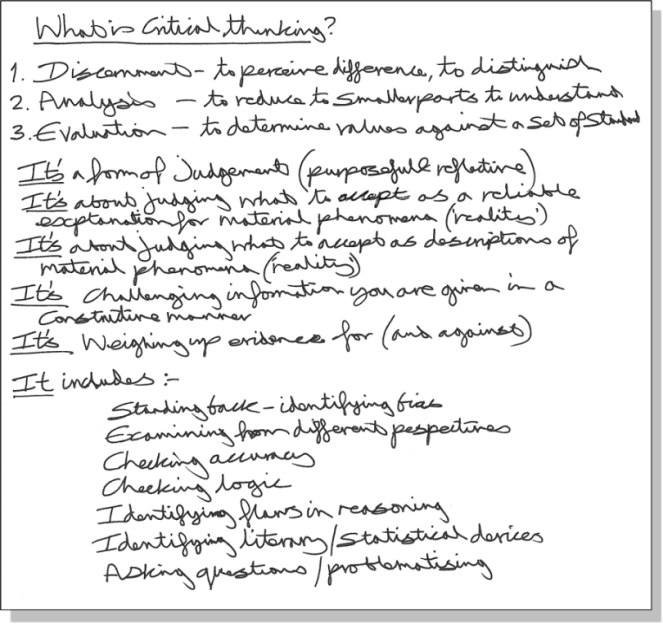 What is Critical thinking?
1. Discernment – to perceive difference, to distinguish
2. Analysis – to reduce to smaller parts to understand
3. Evaluation – to determine values against a set of standard
It's a form of Judgement (purposeful & reflective)
It's about judging what to accept as a reliable
explanation for material phenomena ('realities')
It's about judging what to accept as descriptions of
material phenomena (reality)
It's challenging information you are given in a
Constructive manner
It's Weighing up evidence for (and against)
It includes :-
Standing back – identifying bias
Examining from different perspectives
Checking accuracy
Checking logic
Identifying flaws in reasoning
Identifying literary/statistical devices
Asking questions/problematising